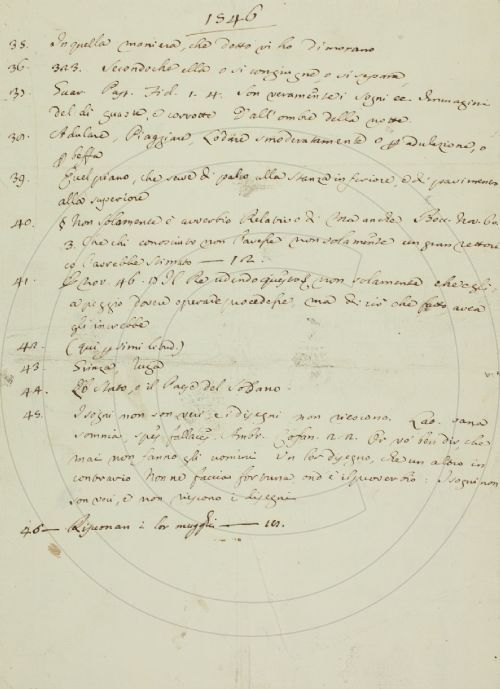 1546
35. In quella maniera, che detto vi ho dimorano
36. 323. Secondoche ella o si congiugne o si separa,
37. Guar. Past. Fid. 1. 4. Son veramente i sogni
del di guaste, e corrotte Dall'ombre della notte.
38. Adulare, Piaggiare, Lodare smoderatamente o p adulazione, o
p beffa
39. Quel piano, che serve di palco alla stanza inferiore, e di pavimento
alla superiore
40. § Non solamente è avverbio Relativo di Ma anche Bocc. Nov.
3. Che chi conosciuto non l'avesse non solamente un gran rettori
co l'avrebbe stimato — 12.
41. nov. 46. Il Re udendo questo non solamente che egli
a peggio dovere operare procedesse, ma di ciò che fatto avea
gl'increbbe
42. (qui p simi
43. Senza,
44. Lo Stato, e il Paese del Soldano.
45. I sogni non son veri e i disegni non riescono. Lat. vana
somnia, spes fallaces. Ambr. Cofan. 2. 2. Or vo' ben dir, che
mai non fanno gli uomini Un lor disegno, che un altro in
contrario Non ne faccia fortuna ond'è il proverbio: I sogni non
son veri, e non riescono i disegni
46 — Risuonan i lor muggiti —